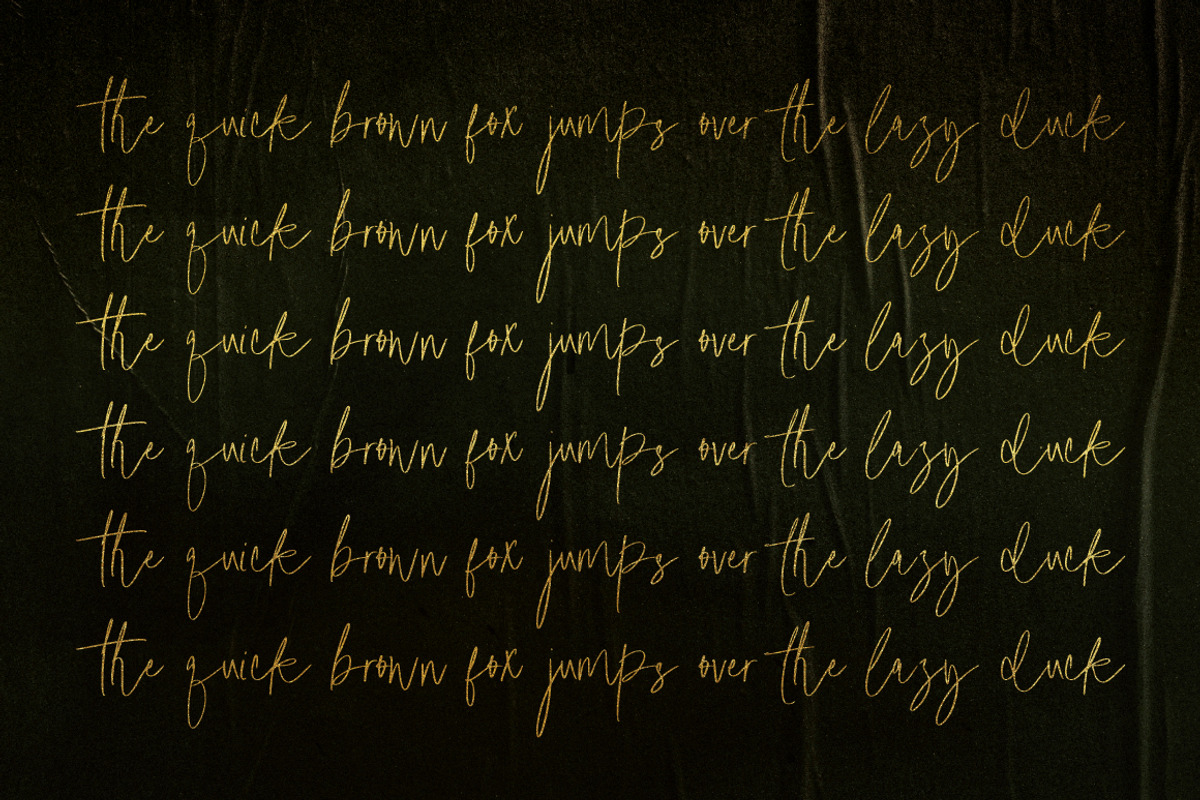 the quick brown fox jumps over the lazy duck
the quick brown fox jumps over the lazy duck
the quick brown fox jumps over the lazy duck
the quick brown fox jumps over the lazy duck
the quick brown fox jumps over the lazy duck
the quick brown fox jumps over the lazy duck